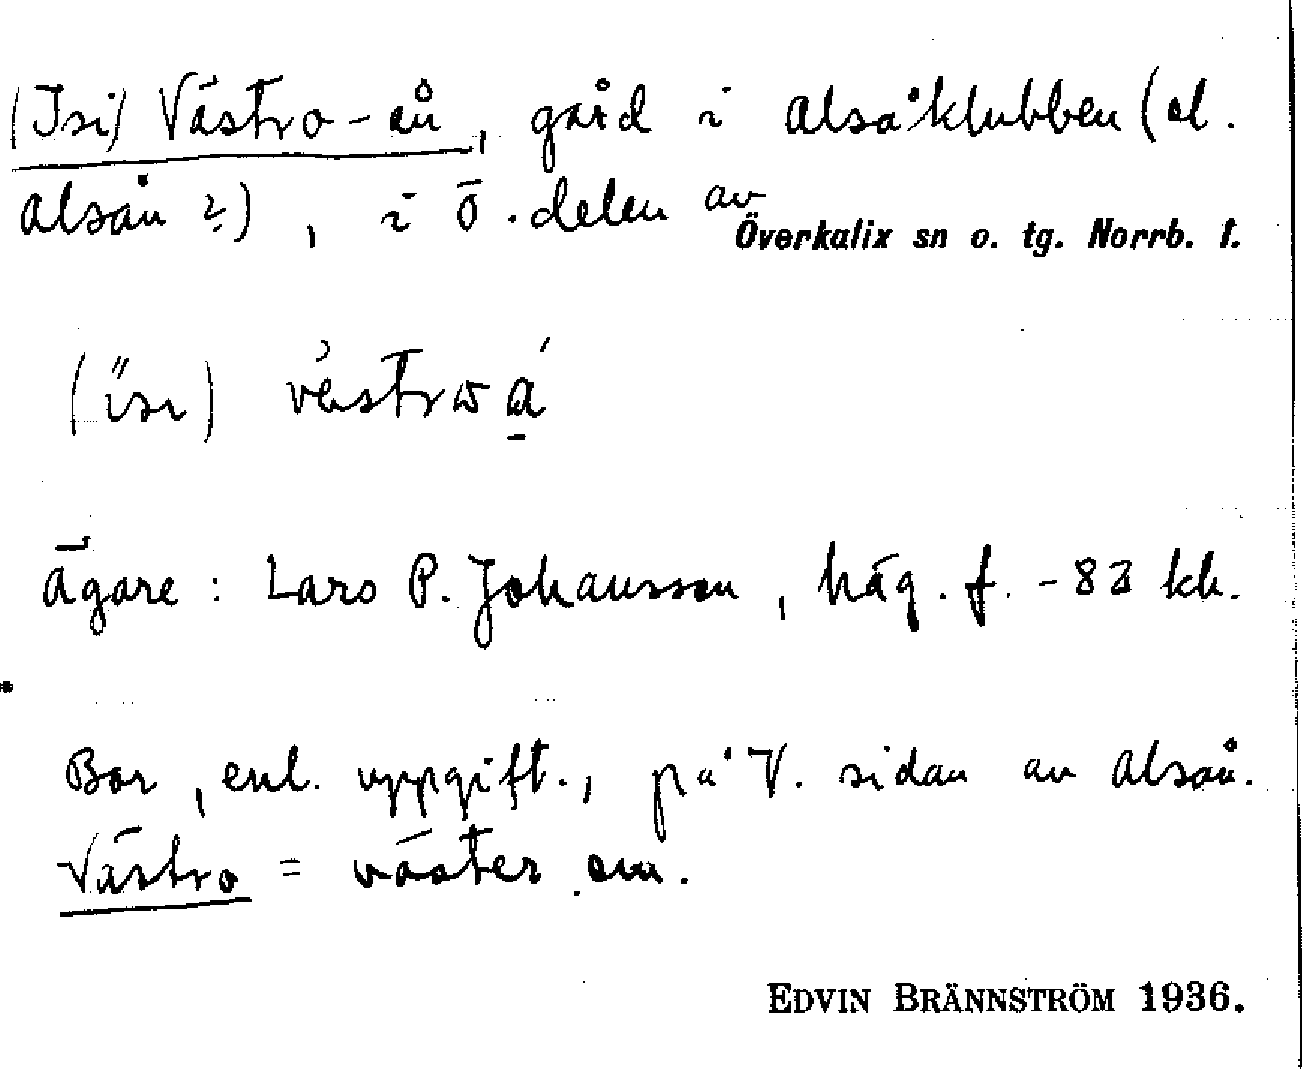 (Isi) Västro-ån, gård i Alsåklubben (el.
Alsån ?), i ö. delen av
Överkalix sn o. tg. Norrb. l.
Ägare: Lars P. Johansson, häg. f. -83 kh.
Bor, enl. uppgift., på V. sidan av Alsån.
Västro = väster om.
EDVIN BRÄNNSTRÖM 1936.